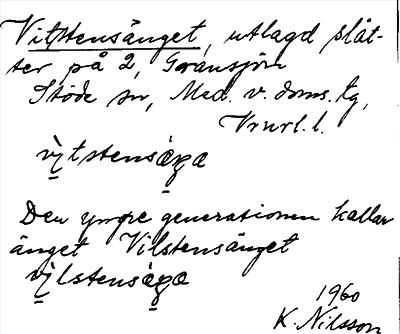 Vitstensänget, utlagd slåt-
ter på 2, Gransjön
Stöde sn, Med. v. doms. tg,
Vrurl. l.
vi̬tstensä̬ŋa
Den yngre generationen kallar
änget Vilstensänget
vi̬lstensä̬ŋa
1960
K. Nilsson